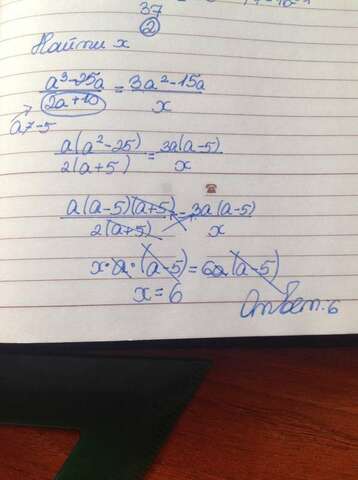 37
②
Найти x
a³-25a / 2a+10 = 3a²-15a / x
a≠-5
a(a²-25) / 2(a+5) = 3a(a-5) / x
a(a-5)(a+5) / 2(a+5) = 3a(a-5) / x
x·a·(a-5)=6a(a-5)
x=6
Ответ:6